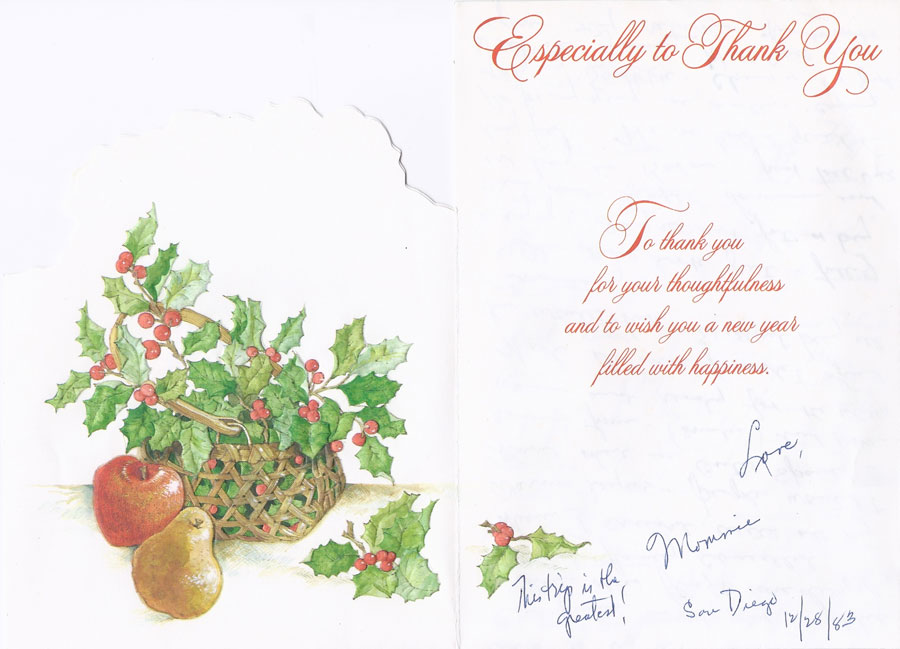 Especially to Thank You
To thank you
for your thoughtfulness
and to wish you a new year
filled with happiness.
Love,
Mommie
This trip is the
greatest!
San Diego 12/28/83